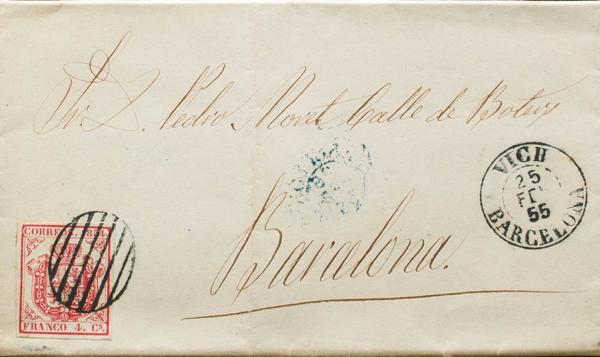 Sr. D. Pedro Moret Calle de Boters
Barcelona.
VICH
25
FE
55
BARCELONA
CORREOS. 1854
FRANCO 4. Cs.